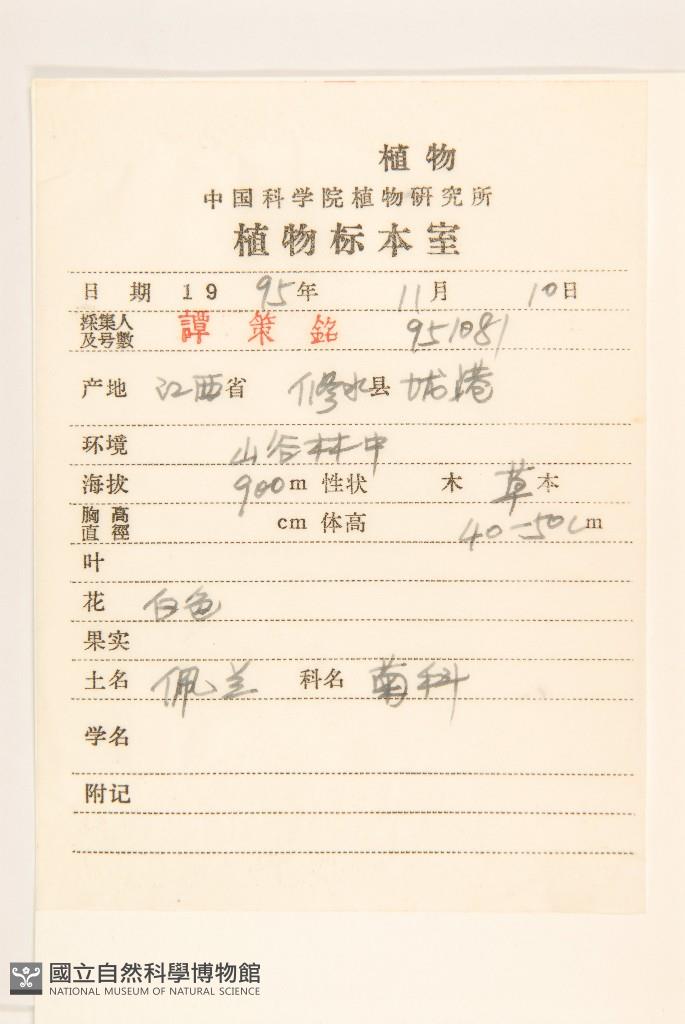 植物
中国科学院植物研究所
植物标本室
日 期 19 95年 11月 10日
採集人及号數 譚策銘 951081
产地 江西省 修水县 城港
环境 山谷林中
海拔 900m 性状 木 草本
胸高直徑 cm 体高 40-50cm
叶
花 白色
果实
土名 佩兰 科名 菊科
学名
附记
國立自然科學博物館
NATIONAL MUSEUM OF NATURAL SCIENCE